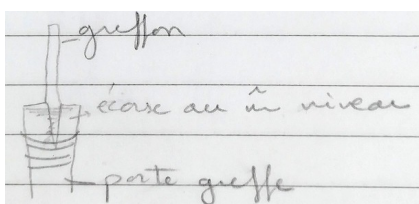 greffon
écorse au m̂ niveau
porte greffe